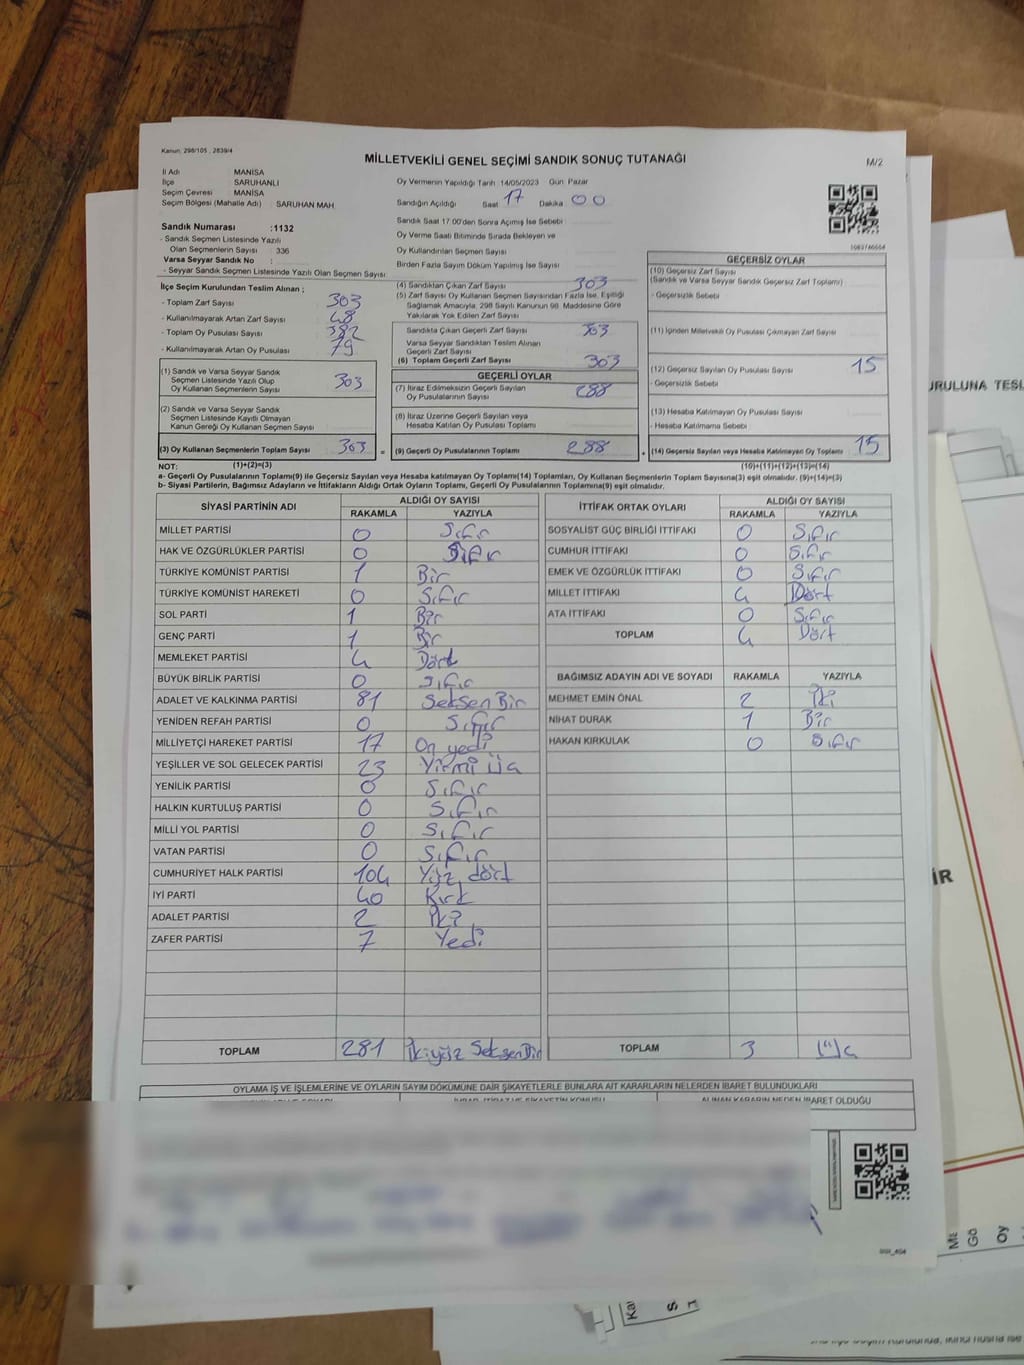 Kanun: 298/105 , 2839/4
MİLLETVEKİLİ GENEL SEÇİMİ SANDIK SONUÇ TUTANAĞI
M/2
İl Adı : MANİSA
İlçe : SARUHANLI
Seçim Çevresi : MANİSA
Seçim Bölgesi (Mahalle Adı) : SARUHAN MAH.
Oy Vermenin Yapıldığı Tarih :14/05/2023 Gün: Pazar
Sandığın Açıldığı Saat 17 Dakika 00
Sandık Saat 17:00'den Sonra Açımış İse Sebebi
Oy Verme Saati Bitiminde Sırada Bekleyen ve
Oy Kullandırılan Seçmen Sayısı
Birden Fazla Sayım Döküm Yapılmış İse Sayısı
Sandık Numarası :1132
- Sandık Seçmen Listesinde Yazılı
Olan Seçmenlerin Sayısı : 336
Varsa Seyyar Sandık No :
- Seyyar Sandık Seçmen Listesinde Yazılı Olan Seçmen Sayısı:
İlçe Seçim Kurulundan Teslim Alınan ;
- Toplam Zarf Sayısı 303
- Kullanılmayarak Artan Zarf Sayısı 48
- Toplam Oy Pusulası Sayısı 382
- Kullanılmayarak Artan Oy Pusulası 79
(1) Sandık ve Varsa Seyyar Sandık
Seçmen Listesinde Yazılı Olup
Oy Kullanan Seçmenlerin Sayısı 303
(2) Sandık ve Varsa Seyyar Sandık
Seçmen Listesinde Kayıtlı Olmayan
Kanun Gereği Oy Kullanan Seçmen Sayısı
(3) Oy Kullanan Seçmenlerin Toplam Sayısı 303
(1)+(2)=(3)
(4) Sandıktan Çıkan Zarf Sayısı 303
(5) Zarf Sayısı Oy Kullanan Seçmen Sayısından Fazla İse, Eşitliği
Sağlamak Amacıyla, 298 Sayılı Kanunun 98. Maddesine Göre
Yakılarak Yok Edilen Zarf Sayısı
Sandıkta Çıkan Geçerli Zarf Sayısı 303
Varsa Seyyar Sandıktan Teslim Alınan
Geçerli Zarf Sayısı
(6) Toplam Geçerli Zarf Sayısı 303
GEÇERLİ OYLAR
(7) İtiraz Edilmeksizin Geçerli Sayılan
Oy Pusulalarının Sayısı 288
(8) İtiraz Üzerine Geçerli Sayılan veya
Hesaba Katılan Oy Pusulası Toplamı
(9) Geçerli Oy Pusulalarının Toplamı 288
GEÇERSİZ OYLAR
(10) Geçersiz Zarf Sayısı
(Sandık ve Varsa Seyyar Sandık Geçersiz Zarf Toplamı)
- Geçersizlik Sebebi
(11) İçinden Milletvekili Oy Pusulası Çıkmayan Zarf Sayısı
(12) Geçersiz Sayılan Oy Pusulası Sayısı 15
- Geçersizlik Sebebi
(13) Hesaba Katılmayan Oy Pusulası Sayısı
- Hesaba Katılmama Sebebi
(14) Geçersiz Sayılan veya Hesaba Katılmayan Oy Toplamı 15
(10)+(11)+(12)+(13)=(14)
NOT:
a- Geçerli Oy Pusulalarının Toplamı(9) ile Geçersiz Sayılan veya Hesaba Katılmayan Oy Toplamı(14) Toplamları, Oy Kullanan Seçmenlerin Toplam Sayısına(3) eşit olmalıdır. (9)+(14)=(3)
b- Siyasi Partilerin, Bağımsız Adayların ve İttifakların Aldığı Ortak Oyların Toplamı, Geçerli Oy Pusulalarının Toplamına(9) eşit olmalıdır.
SİYASİ PARTİNİN ADI ALDIĞI OY SAYISI
RAKAMLA YAZIYLA
MİLLET PARTİSİ 0 Sıfır
HAK VE ÖZGÜRLÜKLER PARTİSİ 0 Sıfır
TÜRKİYE KOMÜNİST PARTİSİ 1 Bir
TÜRKİYE KOMÜNİST HAREKETİ 0 Sıfır
SOL PARTİ 1 Bir
GENÇ PARTİ 1 Bir
MEMLEKET PARTİSİ 4 Dört
BÜYÜK BİRLİK PARTİSİ 0 Sıfır
ADALET VE KALKINMA PARTİSİ 81 Seksen Bir
YENİDEN REFAH PARTİSİ 0 Sıfır
MİLLİYETÇİ HAREKET PARTİSİ 17 On yedi
YEŞİLLER VE SOL GELECEK PARTİSİ 23 Yirmi Üç
YENİLİK PARTİSİ 0 Sıfır
HALKIN KURTULUŞ PARTİSİ 0 Sıfır
MİLLİ YOL PARTİSİ 0 Sıfır
VATAN PARTİSİ 0 Sıfır
CUMHURİYET HALK PARTİSİ 104 Yüz dört
İYİ PARTİ 40 Kırk
ADALET PARTİSİ 2 İki
ZAFER PARTİSİ 7 Yedi
TOPLAM 281 İkiyüz Seksen Bir
İTTİFAK ORTAK OYLARI ALDIĞI OY SAYISI
RAKAMLA YAZIYLA
SOSYALİST GÜÇ BİRLİĞİ İTTİFAKI 0 Sıfır
CUMHUR İTTİFAKI 0 Sıfır
EMEK VE ÖZGÜRLÜK İTTİFAKI 0 Sıfır
MİLLET İTTİFAKI 4 Dört
ATA İTTİFAKI 0 Sıfır
TOPLAM 4 Dört
BAĞIMSIZ ADAYIN ADI VE SOYADI RAKAMLA YAZIYLA
MEHMET EMİN ÖNAL 2 İki
NİHAT DURAK 1 Bir
HAKAN KIRKULAK 0 Sıfır
TOPLAM 3 Üç
OYLAMA İŞ VE İŞLEMLERİNE VE OYLARIN SAYIM DÖKÜMÜNE DAİR ŞİKAYETLERLE BUNLARA AİT KARARLARIN NELERDEN İBARET BULUNDUKLARI
ALINAN KARARIN NEDEN İBARET OLDUĞU
URULUNA TESL
İR
Me
Gö
Oy
Ka